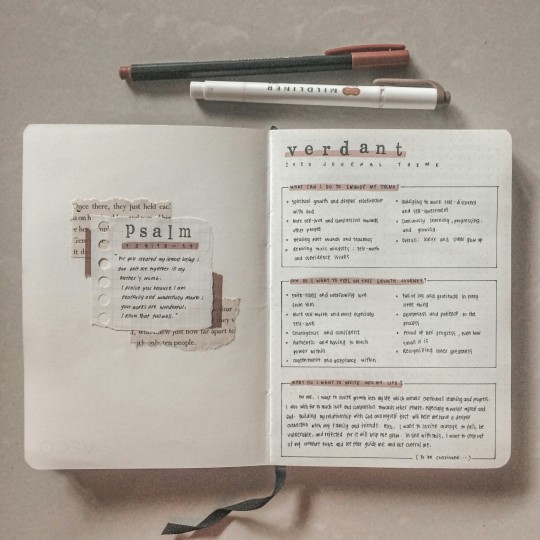 MILDLINER
Once there, they just held eac
psalm
139:13-14
"For you created my inmost being;
you knit me together in my
mother's womb.
I praise you because I am
fearfully and wonderfully made;
your works are wonderful,
I know that full well."
just now far apart to
only ten people.
verdant
JOURNAL THEME
WHAT CAN I DO TO EMBODY MY THEME?
• spiritual growth and deeper relationship
with God
• more self-love and compassion towards
other people
• healing past wounds and traumas
• toxic mindsets : self-doubt
and confidence issues
• to more self-discovery
and self-investment
• continually learning, progressing,
and growing
• overall inner and glow up
DO I WANT TO FEEL ON THIS GROWTH JOURNEY?
• and unwavering love
from Him
• more self-worth and most especially
self-love
• Courageous and confident
• Authentic and having so much
power within
• contentment and acceptance within
• full of joy and gratitude in every
little thing
• and patience to the
process
• Proud of her progress, even how
small it is
• Recognizing inner greatness
WHAT DO I WANT TO INVITE INTO MY LIFE?
For me, I want to invite growth into my life which entails continuous learning and progress.
I also wish for so much love and compassion towards other people, especially towards myself and
God. Building my relationship with God and myself first will help me have a deeper
connection with my family and friends. Also, I want to invite courage to fail, be
vulnerable, and rejected for it will help me grow. In line with this, I want to step out
of my comfort zone and let God guide me and
(to be continued...)